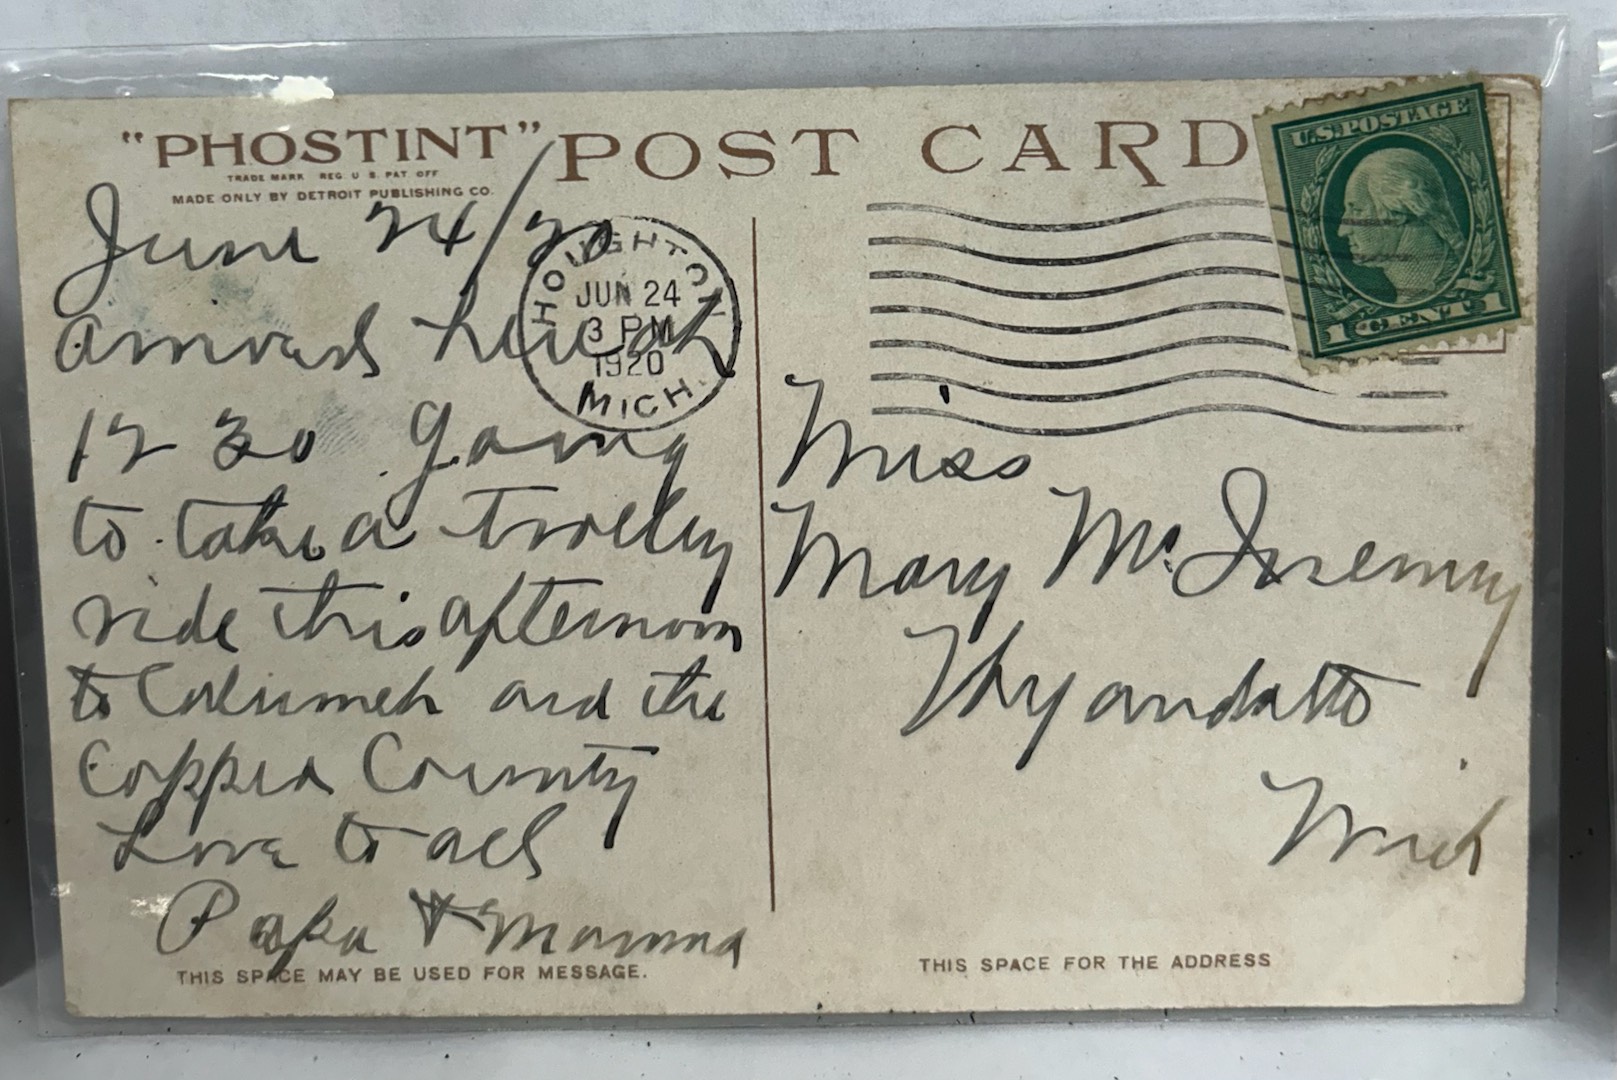 "PHOSTINT" POST CARD
TRADE MARK REG U S. PAT OFF
MADE ONLY BY DETROIT PUBLISHING CO.
June 24/20
arrived here at
12 30 going
to take a trolley
ride this afternoon
to Calumet and the
Copper County
Love to all
Papa & Mamma
THIS SPACE MAY BE USED FOR MESSAGE.
HOUGHTON
JUN 24
3 PM
1920
MICH.
U.S. POSTAGE
1 CENT 1
Miss
Mary Mc
Wyandotte
Mich
THIS SPACE FOR THE ADDRESS